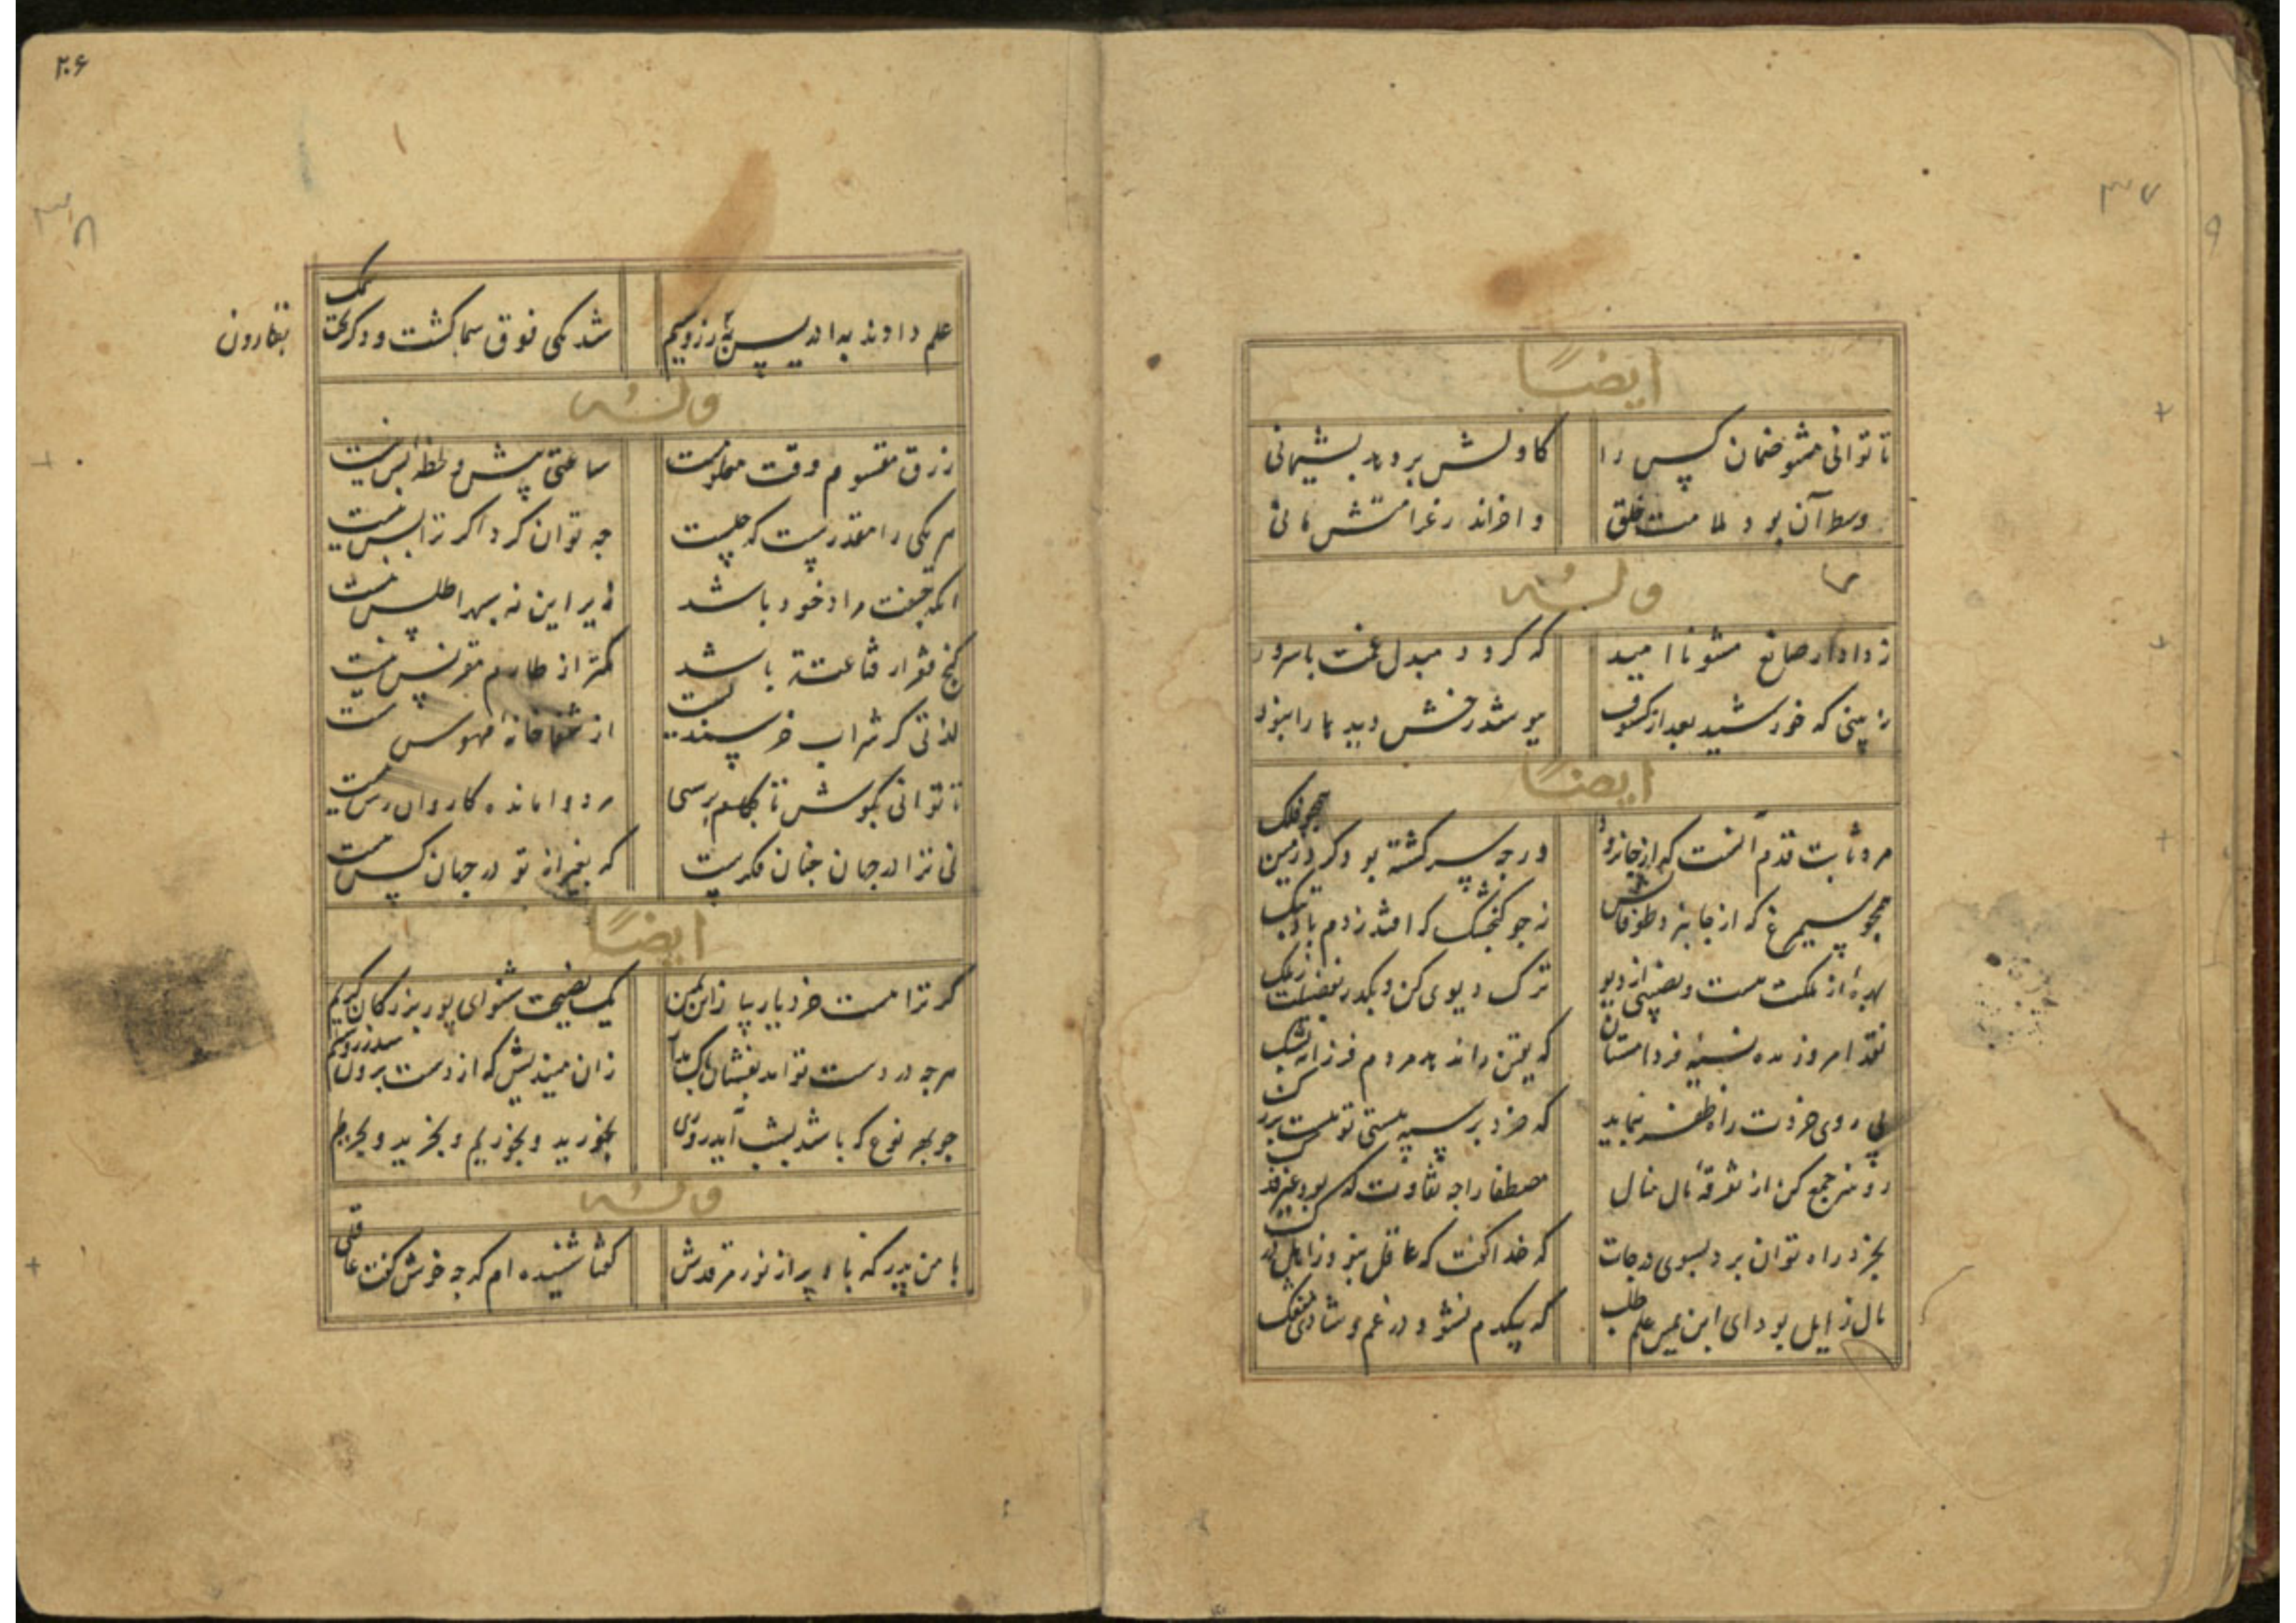 ۳۷
ایضاً
تا توانی مشو ضمان کسی را کاولش بر دهد بشیمانی
وسط آن بود ملامت خلق و اخراند رغرامتش مانی
وله
زدادار صانع مشو ناامید که کردد مبدل غمت با سرور
نه بینی که خورشید بعد از کسوف
ایضاً
مرد ثابت قدم آنست که از جا نرود ورجه سرکشته بود کرد زمین همجو فلک
همجو سیمرغ که از جا نبرد طوفانش نه جو کنجشک که افتد زدم باد تبک
بهرهٔ از ملکت هست و نصیبی از دیو ترک دیوی کن و بکذر بفضیلت زملک
نقد امروز مده نسیه فردا مستان که یقین را ندهد مردم فرزانه بشک
پی روی خردت راه ظفر بنماید که خرد بر سپه هستی تو هست یزک
رو هنر جمع کن از تفرقهٔ مال منال مصطفا را جه تفاوت که نبودش
بخرد راه توان برد بسوی درجات که خدا کفت که عاقل
مال زایل بود ای ابن یمین علم طلب که بیکدم نشود در غم و شادی منفک
۲۰۶
۳۸
علم دادند به ادریس و بقارون زر و سیم شد یکی فوق سماکشت و دکر تحت سمک
بقارون
وله
رزق مقسوم وقت معلومست ساعتی پیش و لحظهٔ پس نیست
هریکی را مقدرست که جیست جه توان کرد اکر ترا بس نیست
انکه جفت مراد خود باشد زیر این نه سپهر اطلس نیست
کنج فقر ار قناعتت باشد کمتر از طارم مقرنس نیست
لذتی کز شراب خرسندیست از شفاخانه مهوس نیست
تا توانی بکوش تا بکام برسی مرد وامانده کاروان رس نیست
نی ترا در جهان جنان فکریست که بغیر از تو در جهان کس نیست
ایضاً
کر ترا هست خرد یار بیا زابن یمین یک نصیحت شنو ای پور بزرکان کریم
هرجه در دست تو آید بفشان باک مدار زان میندیش که از دست برون شد زر و سیم
جو بهر نوع که باشد بشب آید روزی بخورید و بخوریم و
وله
با من پدر که باد پر از نور مرقدش کفتا شنیده ام که جه خوش کفت عاقلی